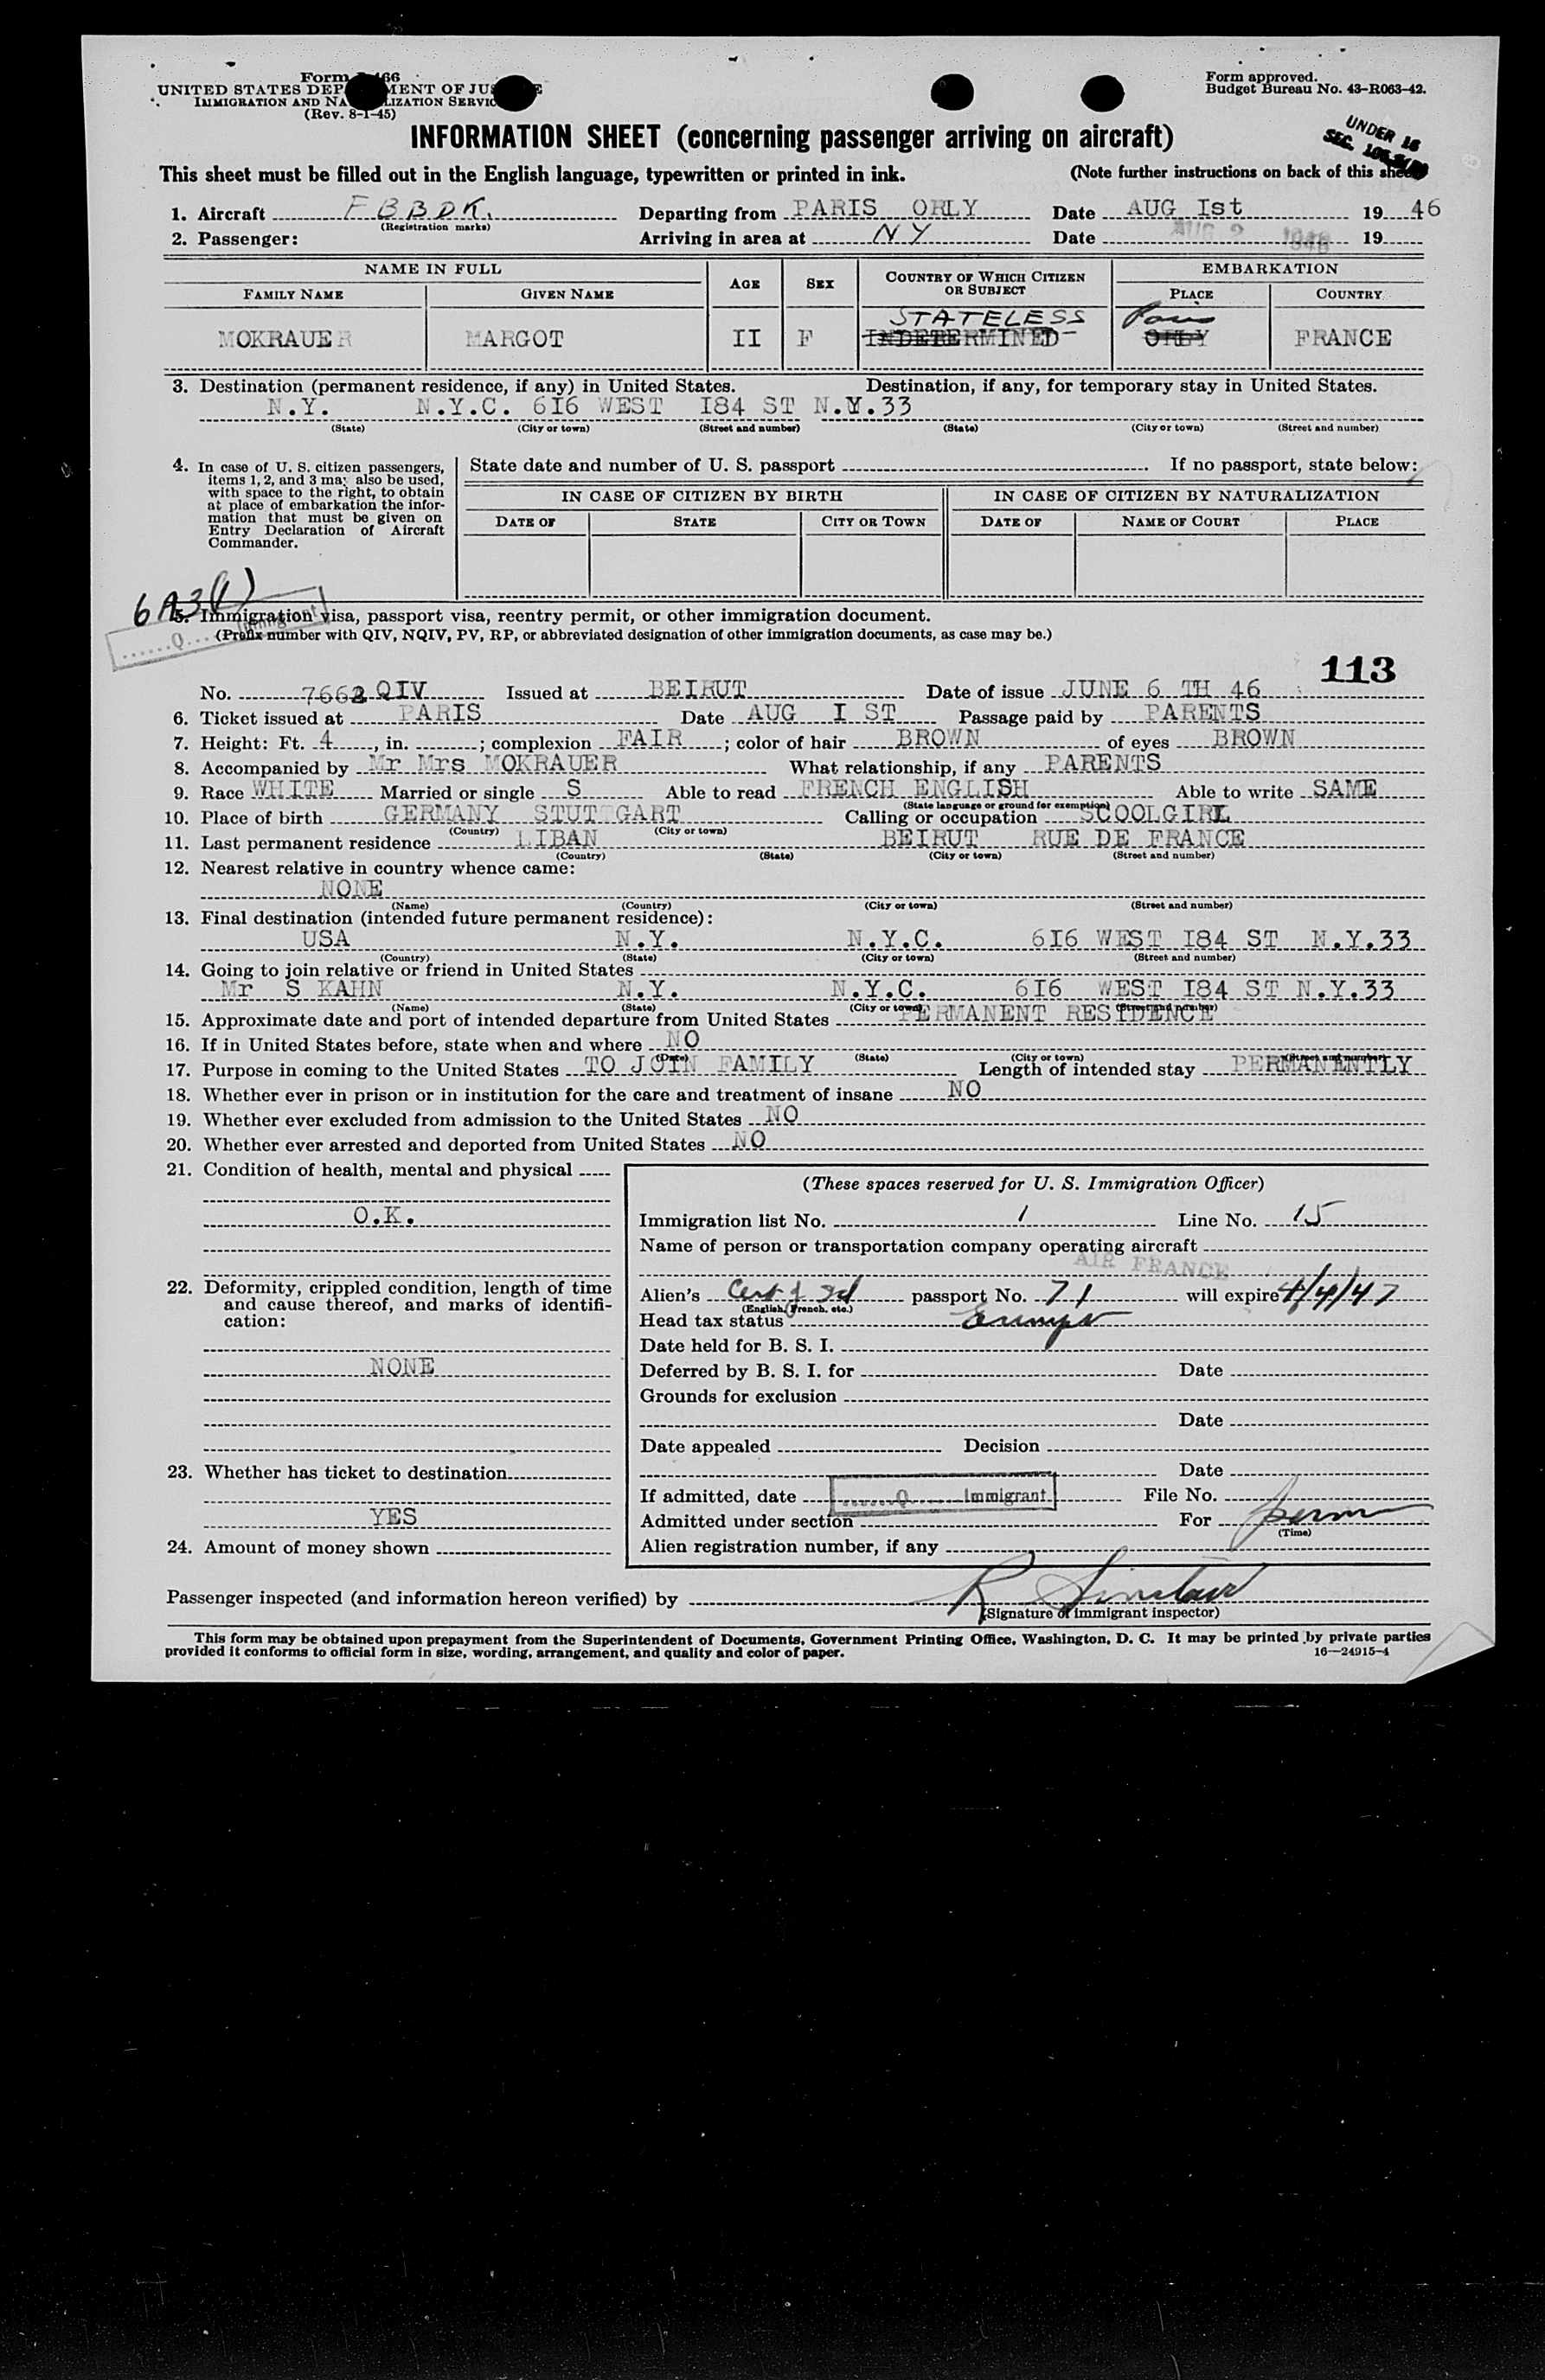 Form 66
UNITED STATES DEP MENT OF JUS E
IMMIGRATION AND NA LIZATION SERVIC
(Rev. 8-1-45)
Form approved.
Budget Bureau No. 43-R063-42.
INFORMATION SHEET (concerning passenger arriving on aircraft)
UNDER 16
SEC.
This sheet must be filled out in the English language, typewritten or printed in ink. (Note further instructions on back of this sheet
1. Aircraft F B B D K. Departing from PARIS ORLY Date AUG Ist 19 46
(Registration marks)
2. Passenger: Arriving in area at N Y Date AUG 2 1946 19
NAME IN FULL AGE SEX COUNTRY OF WHICH CITIZEN OR SUBJECT EMBARKATION
FAMILY NAME GIVEN NAME PLACE COUNTRY
STATELESS Paris
MOKRAUER MARGOT II F INDETERMINED ORLY FRANCE
3. Destination (permanent residence, if any) in United States. Destination, if any, for temporary stay in United States.
N.Y. N.Y.C. 6I6 WEST I84 ST N.Y.33
(State) (City or town) (Street and number) (State) (City or town) (Street and number)
4. In case of U. S. citizen passengers, items 1, 2, and 3 may also be used, with space to the right, to obtain at place of embarkation the information that must be given on Entry Declaration of Aircraft Commander.
State date and number of U. S. passport If no passport, state below:
IN CASE OF CITIZEN BY BIRTH IN CASE OF CITIZEN BY NATURALIZATION
DATE OF STATE CITY OR TOWN DATE OF NAME OF COURT PLACE
6A3(1)
5. Immigration visa, passport visa, reentry permit, or other immigration document.
Q
(Prefix number with QIV, NQIV, PV, RP, or abbreviated designation of other immigration documents, as case may be.)
113
No. 7662 QIV Issued at BEIRUT Date of issue JUNE 6 TH 46
6. Ticket issued at PARIS Date AUG I ST Passage paid by PARENTS
7. Height: Ft. 4, in. ; complexion FAIR; color of hair BROWN of eyes BROWN
8. Accompanied by Mr Mrs MOKRAUER What relationship, if any PARENTS
9. Race WHITE Married or single S Able to read FRENCH ENGLISH Able to write SAME
(State language or ground for exemption)
10. Place of birth GERMANY STUTTGART Calling or occupation SCOOLGIRL
(Country) (City or town)
11. Last permanent residence LIBAN BEIRUT RUE DE FRANCE
(Country) (State) (City or town) (Street and number)
12. Nearest relative in country whence came:
NONE
(Name) (Country) (City or town) (Street and number)
13. Final destination (intended future permanent residence):
USA N.Y. N.Y.C. 6I6 WEST I84 ST N.Y.33
(Country) (State) (City or town) (Street and number)
14. Going to join relative or friend in United States
Mr S KAHN N.Y. N.Y.C. 6I6 WEST I84 ST N.Y.33
(Name) (State) (City or town) (Street and number)
15. Approximate date and port of intended departure from United States PERMANENT RESIDENCE
16. If in United States before, state when and where NO
(Date) (State) (City or town) (Street and number)
17. Purpose in coming to the United States TO JOIN FAMILY Length of intended stay PERMANENTLY
18. Whether ever in prison or in institution for the care and treatment of insane NO
19. Whether ever excluded from admission to the United States NO
20. Whether ever arrested and deported from United States NO
21. Condition of health, mental and physical
O.K.
22. Deformity, crippled condition, length of time and cause thereof, and marks of identification:
NONE
23. Whether has ticket to destination
YES
24. Amount of money shown
(These spaces reserved for U. S. Immigration Officer)
Immigration list No. 1 Line No. 15
Name of person or transportation company operating aircraft
AIR FRANCE
Alien's Cert of Id passport No. 71 will expire 4/4/47
(English, French, etc.)
Head tax status Exempt
Date held for B. S. I.
Deferred by B. S. I. for Date
Grounds for exclusion
Date
Date appealed Decision
Date
If admitted, date Q Immigrant File No.
Admitted under section For perm
(Time)
Alien registration number, if any
Passenger inspected (and information hereon verified) by R Sinclair
(Signature of immigrant inspector)
This form may be obtained upon prepayment from the Superintendent of Documents, Government Printing Office, Washington, D. C. It may be printed by private parties
provided it conforms to official form in size, wording, arrangement, and quality and color of paper. 16—24915-4